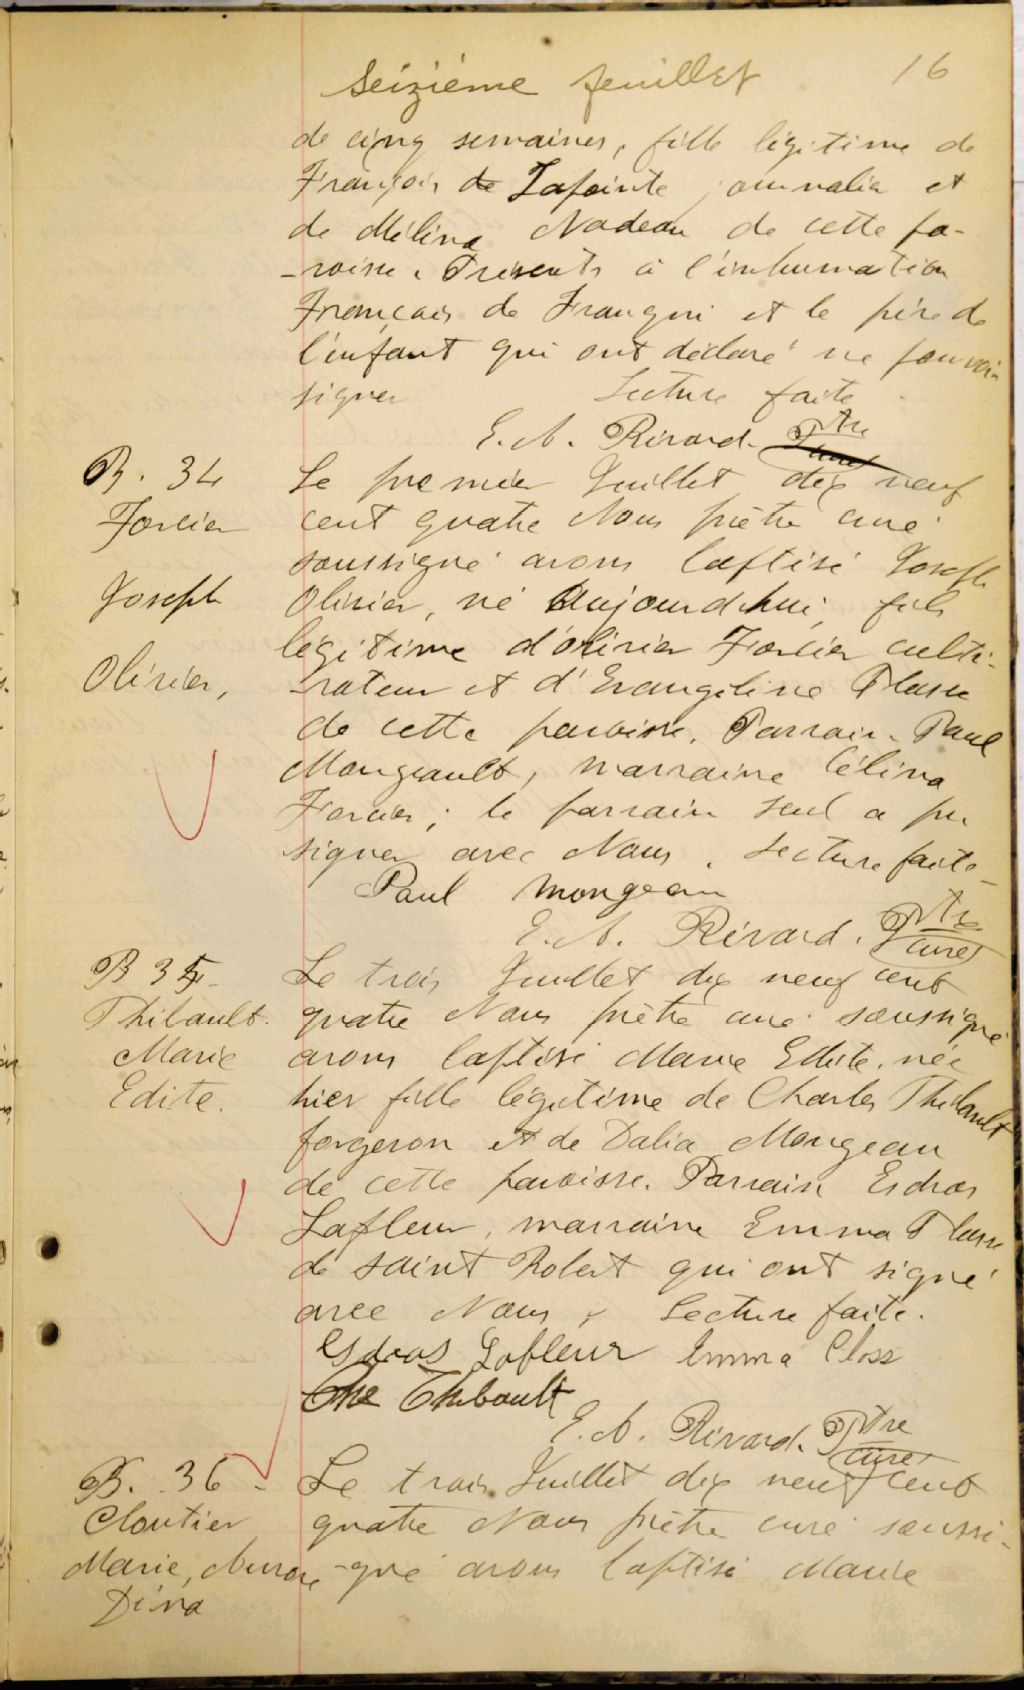 Seizième feuillet 16
de cinq semaines, fille légitime de
François de Lapointe journalier et
de Mélina Nadeau de cette pa-
-roisse. Présents à l'inhumation
François de et le père de
l'enfant qui ont déclaré ne pouvoir
signer Lecture faite
E. A. Rivard. Ptre
B. 34
Forcier
Joseph
Olivier,
Le premier Juillet dix neuf
cent quatre Nous prêtre curé
soussigné avons baptisé Joseph
Olivier, né Aujourd'hui, fils
légitime d'Olivier Forcier culti-
-vateur et d'Evangeline Plasse
de cette paroisse. Parrain Paul
Mongeault, marraine Célina
Forcier; le parrain seul a pu
signer avec Nous. Lecture faite
Paul Mongeau
E. A. Rivard. Ptre curé
B 35.
Thibault.
Marie
Edite.
Le trois Juillet dix neuf cent
quatre Nous prêtre curé soussigné
avons baptisé Marie Edite, née
hier fille légitime de Charles Thibault
forgeron et de Dalia Mongeau
de cette paroisse. Parrain Esdras
Lafleur, marraine Emma Plasse
de saint Robert qui ont signé
avec Nous, Lecture faite.
Esdras Lafleur Emma Closs
Che Thibault
E. A. Rivard. Ptre curé
B. 36.
Cloutier
Marie, Aurore
Dina
Le trois Juillet dix neuf cent
quatre Nous prêtre curé soussi-
-gné avons baptisé Marie